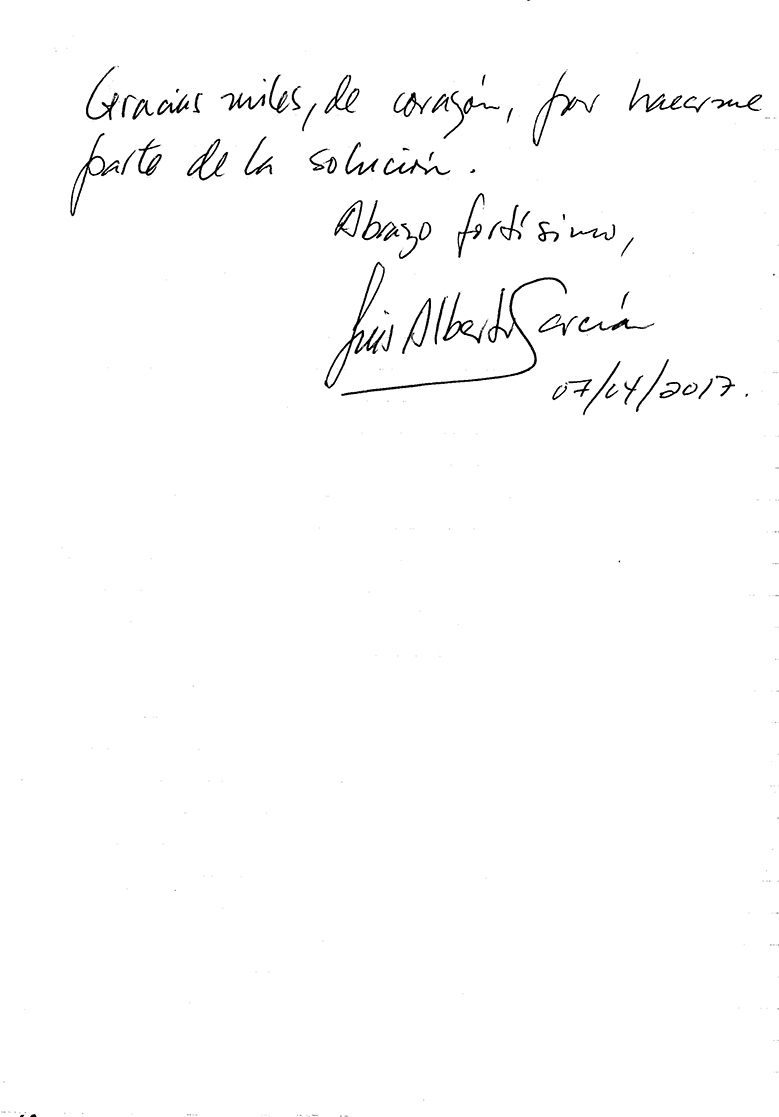 Gracias miles, de corazón, por hacerme
parte de la solución.
Abrazo fortísimo,
Luis Alberto García
07/04/2017.